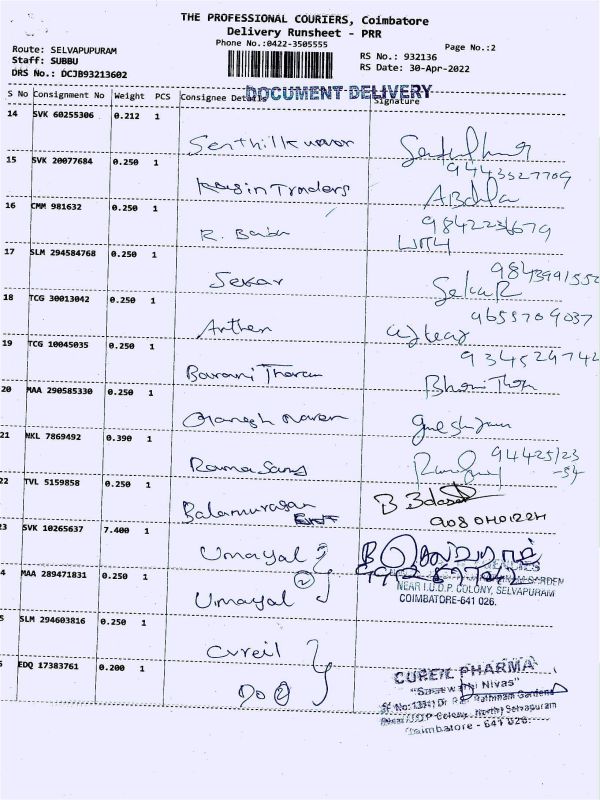 THE PROFESSIONAL COURIERS, Coimbatore
Delivery Runsheet - PRR
Phone No.:0422-3505555
Page No.:2
Route: SELVAPUPURAM
Staff: SUBBU
DRS No.: DCJB93213602
RS No.: 932136
RS Date: 30-Apr-2022
DOCUMENT DELIVERY
S No Consignment No Weight PCS Consignee Details Signature
14 SVK 60255306 0.212 1
Senthilkumar
9443527709
15 SVK 20077684 0.250 1
Traders
Abdula
16 CMM 981632 0.250 1
9842236679
R. Babu
17 SLM 294584768 0.250 1
9843991552
Sekar
Sekar
18 TCG 30013042 0.250 1
9655709037
19 TCG 10045035 0.250 1
934529742
20 MAA 290585330 0.250 1
21 NKL 7869492 0.390 1
94425123
-54
22 TVL 5159858 0.250 1
Balamurugan
B
23 SVK 10265637 7.400 1
Umayal
4 MAA 289471831 0.250 1
GARDEN
NEAR I.U.D.P. COLONY, SELVAPURAM
COIMBATORE-641 026.
2
Umayal
5 SLM 294603816 0.250 1
Cureil
6 EDQ 17383761 0.200 1
Do 2
CUREIL PHARMA
Nivas"
Rathinam Gardens
Colony, North, Selvapuram
Coimbatore - 641 026.